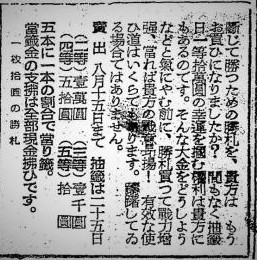 斷じて勝つための勝札を、貴方は もう
お買ひになりましたか? 間もなく抽籤
日一等拾萬圓の幸運を摑む權利は貴方に
もあるのです。そんな大金をどうしよう
などと氣にやむ前に、勝札買つて戰力增
强、當れば貴方の戰意昂揚! 有效な使
ひ道はいくらでも有ります。躊躇してゐ
る場合ではありません。
賣出 八月十五日まで 抽籤は二十五日
(二等)壹萬圓 (三等)壹千圓
(四等)五拾圓 (五等)拾圓
五本に一本の割合で當り籤。
當籤金の支拂は全部現金拂ひです。
一枚拾圓の勝札